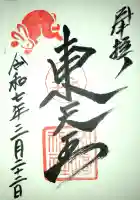 奉拝
東天王
令和七年三月二十三日